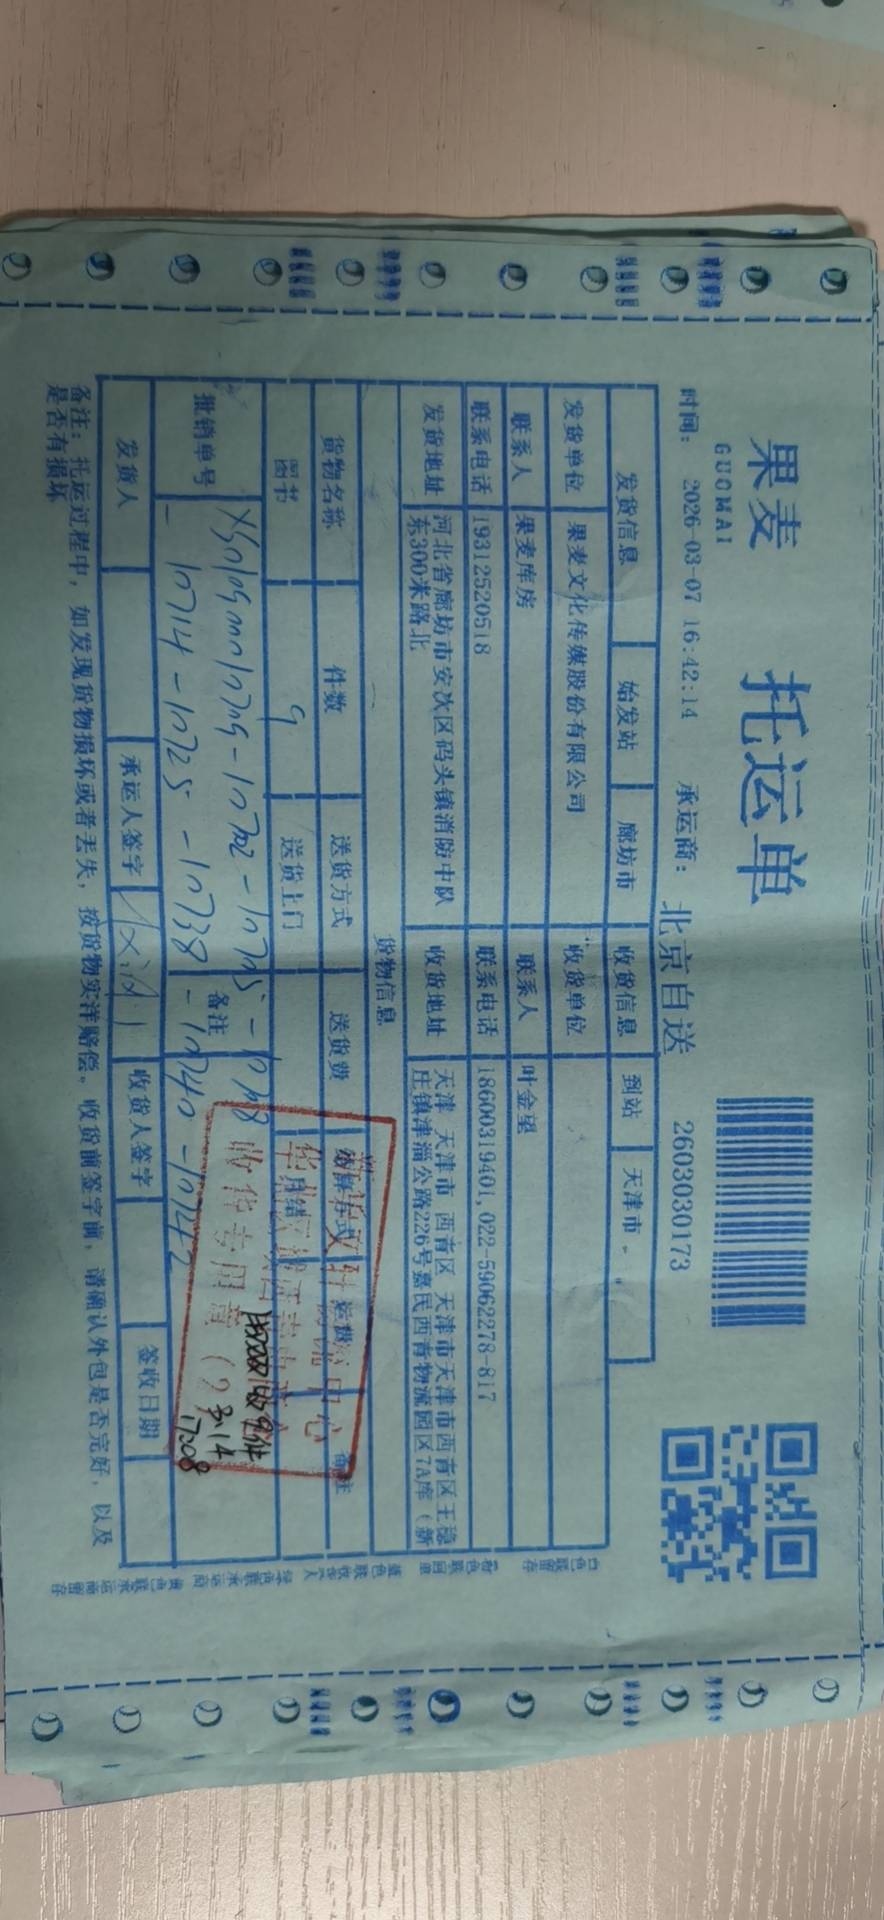 果麦
GUOMAI
托运单
时间: 2026-03-07 16:42:14 承运商: 北京自送 2603030173
发货信息 始发站 廊坊市 收货信息 到站 天津市
发货单位 果麦文化传媒股份有限公司 收货单位
联系人 果麦库房 联系人 叶金望
联系电话 19312520518 联系电话 18600319401,022-59062278-817
发货地址 河北省廊坊市安次区码头镇消防中队
东300米路北
收货地址 天津 天津市 西青区 天津市天津市西青区王稳
庄镇津淄公路226号嘉民西青物流园区7A库(新
货物信息
货物名称 件数 送货方式 送货费 结算方式 运费 备注
图书 9 送货上门 月结
批销单号 -10702-10705-10708 备注
-10714-10725-10738-10740-10742
发货人 承运人签字 收货人签字 签收日期
备注: 托运过程中, 如发现货物损坏或者丢失, 按货物实洋赔偿。收货前签字前, 请确认外包是否完好, 以及
是否有损坏
收货专用章(2)
3.14
17208